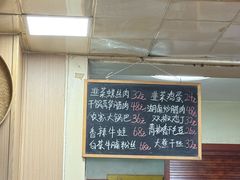 韭菜螺丝肉32元 韭菜鸡蛋24元
干锅莴笋腊肉48元 湖南炒腊肉48元
农家大锅巴36元 双椒鸡丁32元
香辣牛蛙68元
白菜牛腩粉丝68元 大煮干丝32元